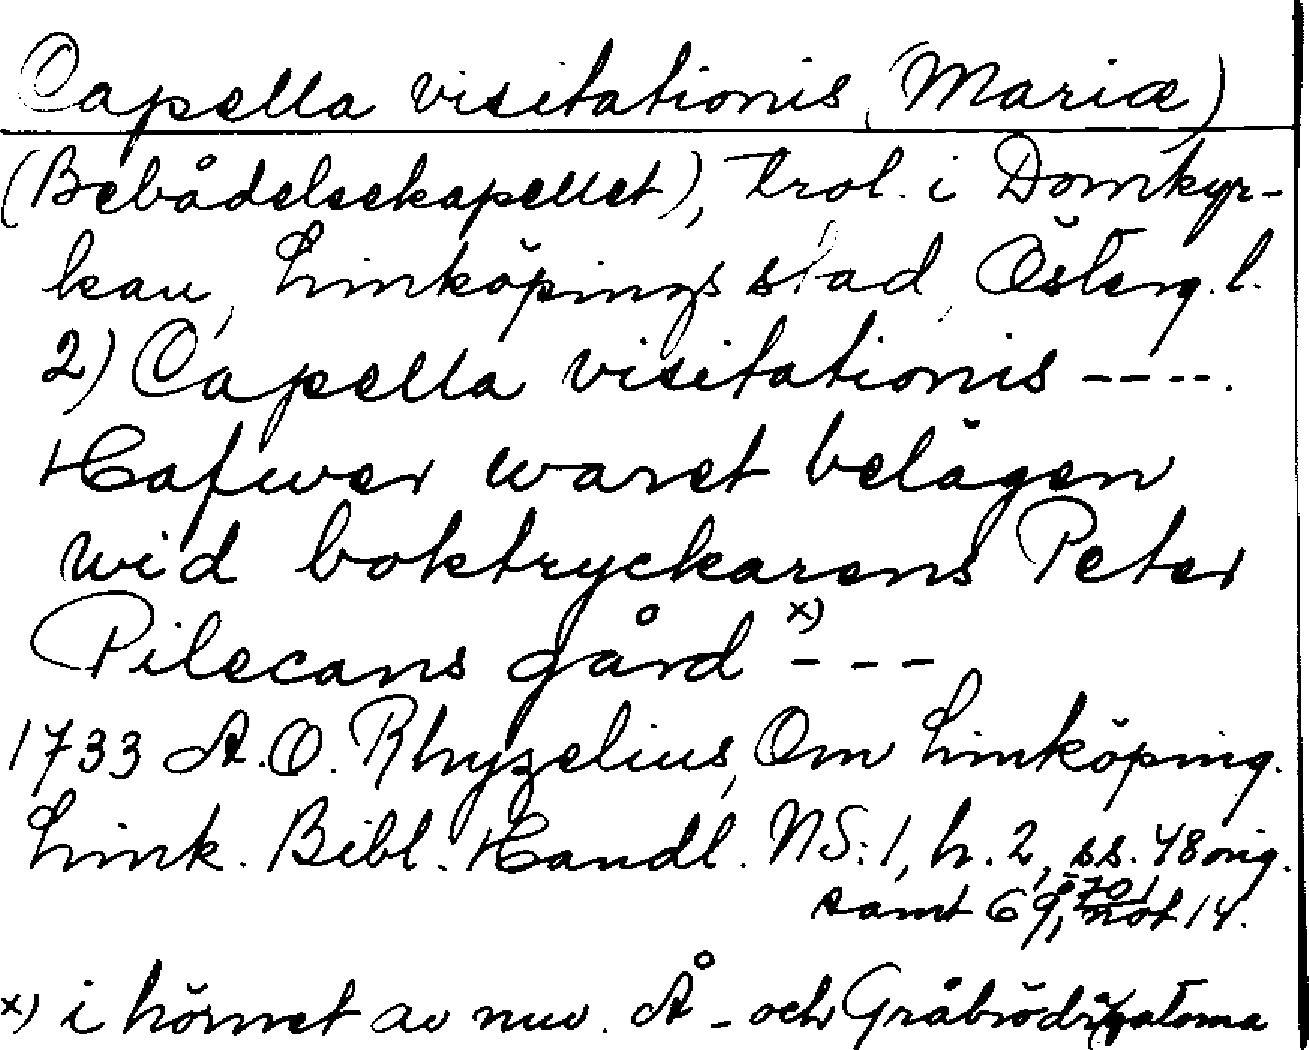 Capella visitationis (Mariæ)
(Bebådelsekapellet), trol. i Domkyr-
kan, Linköpings stad, Österg.l.
2) Capella visitationis ----.
Hafwer waret belägen
wid boktryckarens Peter
Pilecans gård x) ---
1733 A.O. Rhyzelius, Om Linköping.
Link. Bibl. Handl. NS:1, h. 2, ss. 48 orig.
samt 69, 70, not 14.
x) i hörnet av nuv. Å- och Gråbrödragatorna